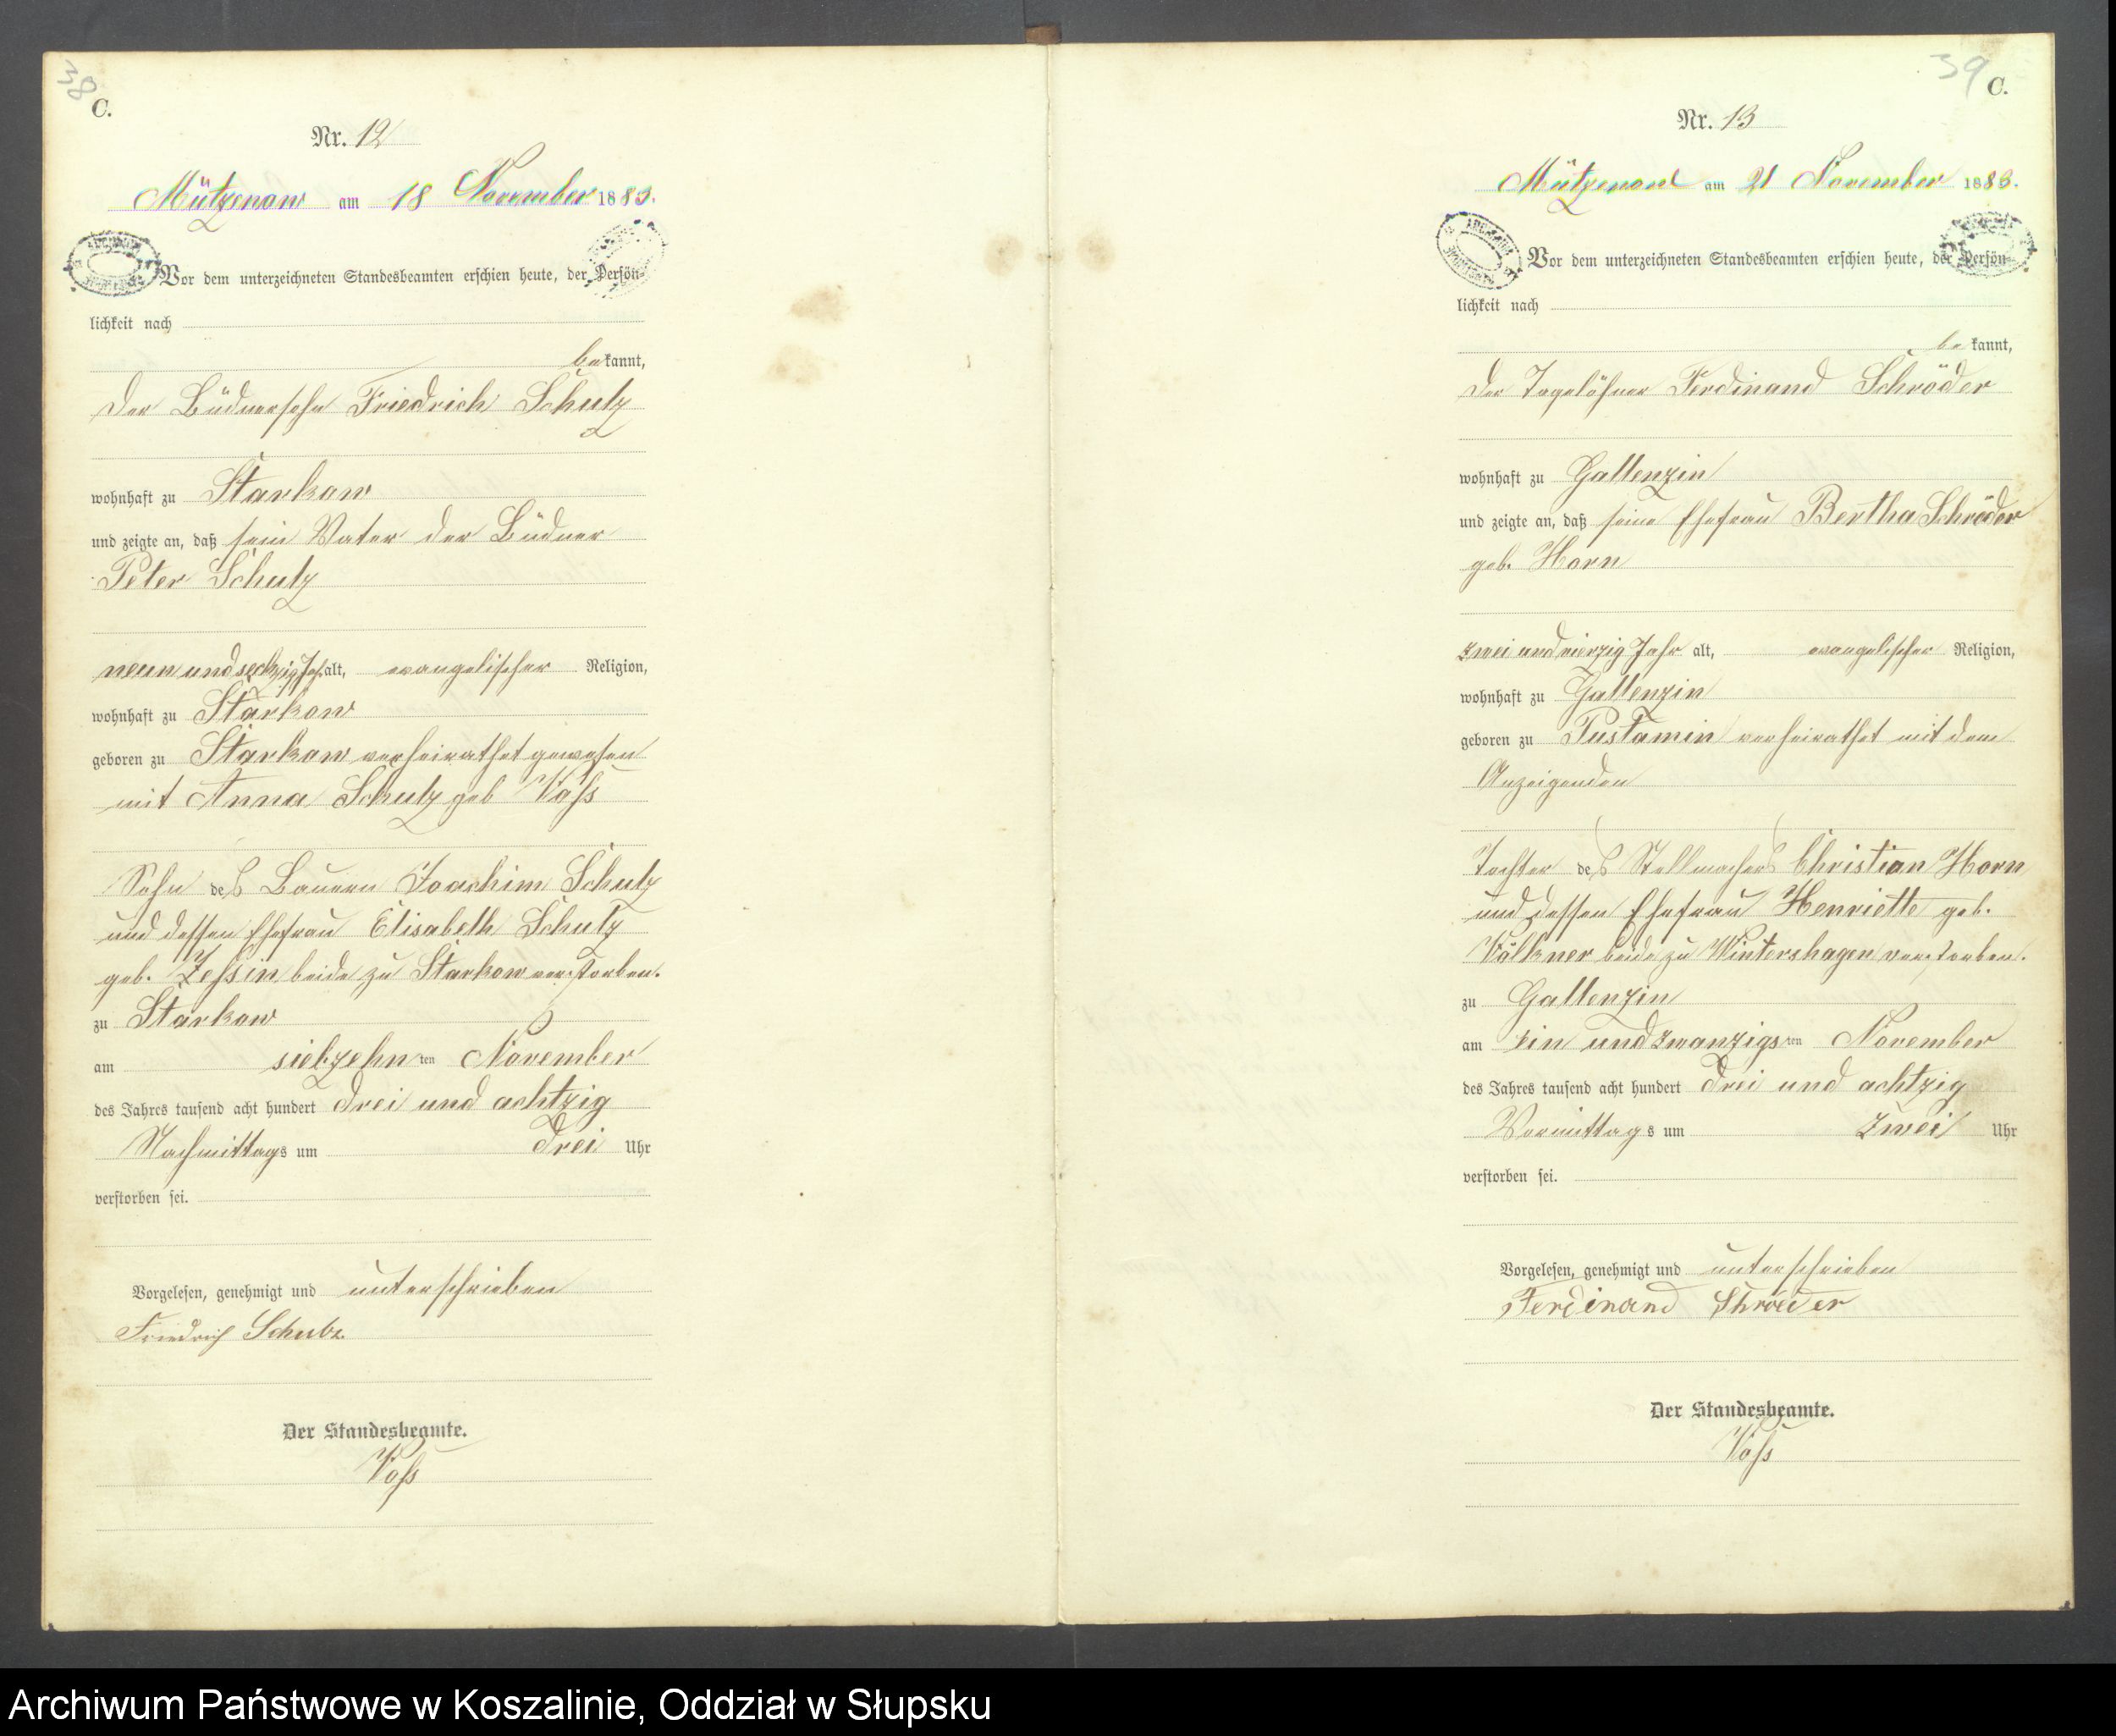 38
C.
Nr. 12
Mützenow am 18 November 1883.
Vor dem unterzeichneten Standesbeamten erschien heute, der Persön-
lichkeit nach
bekannt,
der Büdnersohn Friedrich Schulz
wohnhaft zu Starkow
und zeigte an, daß sein Vater der Büdner
Peter Schulz
neun und sechzig Jahr alt, evangelischer Religion,
wohnhaft zu Starkow
geboren zu Starkow verheirathet gewesen
mit Anna Schulz geb Voß
Sohn des Bauern Joachim Schulz
und dessen Ehefrau Elisabeth Schulz
geb. Zessin beide zu Starkow verstorben.
zu Starkow
am siebzehnten November
des Jahres tausend acht hundert drei und achtzig
Nachmittags um drei Uhr
verstorben sei.
Vorgelesen, genehmigt und unterschrieben
Friedrich Schulz
Der Standesbeamte.
Voß
39
C.
Nr. 13
Mützenow am 21 November 1883.
Vor dem unterzeichneten Standesbeamten erschien heute, der Persön-
lichkeit nach
bekannt,
der Tagelöhner Ferdinand Schröder
wohnhaft zu Gallenzin
und zeigte an, daß seine Ehefrau Bertha Schröder
geb. Horn
zwei und vierzig Jahr alt, evangelischer Religion,
wohnhaft zu Gallenzin
geboren zu Pustamin verheirathet mit dem
Anzeigenden
Tochter des Stellmachers Christian Horn
und dessen Ehefrau Henriette geb.
Völkner beide zu Wintershagen verstorben.
zu Gallenzin
am ein und zwanzigsten November
des Jahres tausend acht hundert drei und achtzig
Vormittags um zwei Uhr
verstorben sei.
Vorgelesen, genehmigt und unterschrieben
Ferdinand Shröder
Der Standesbeamte.
Voß
Archiwum Państwowe w Koszalinie, Oddział w Słupsku